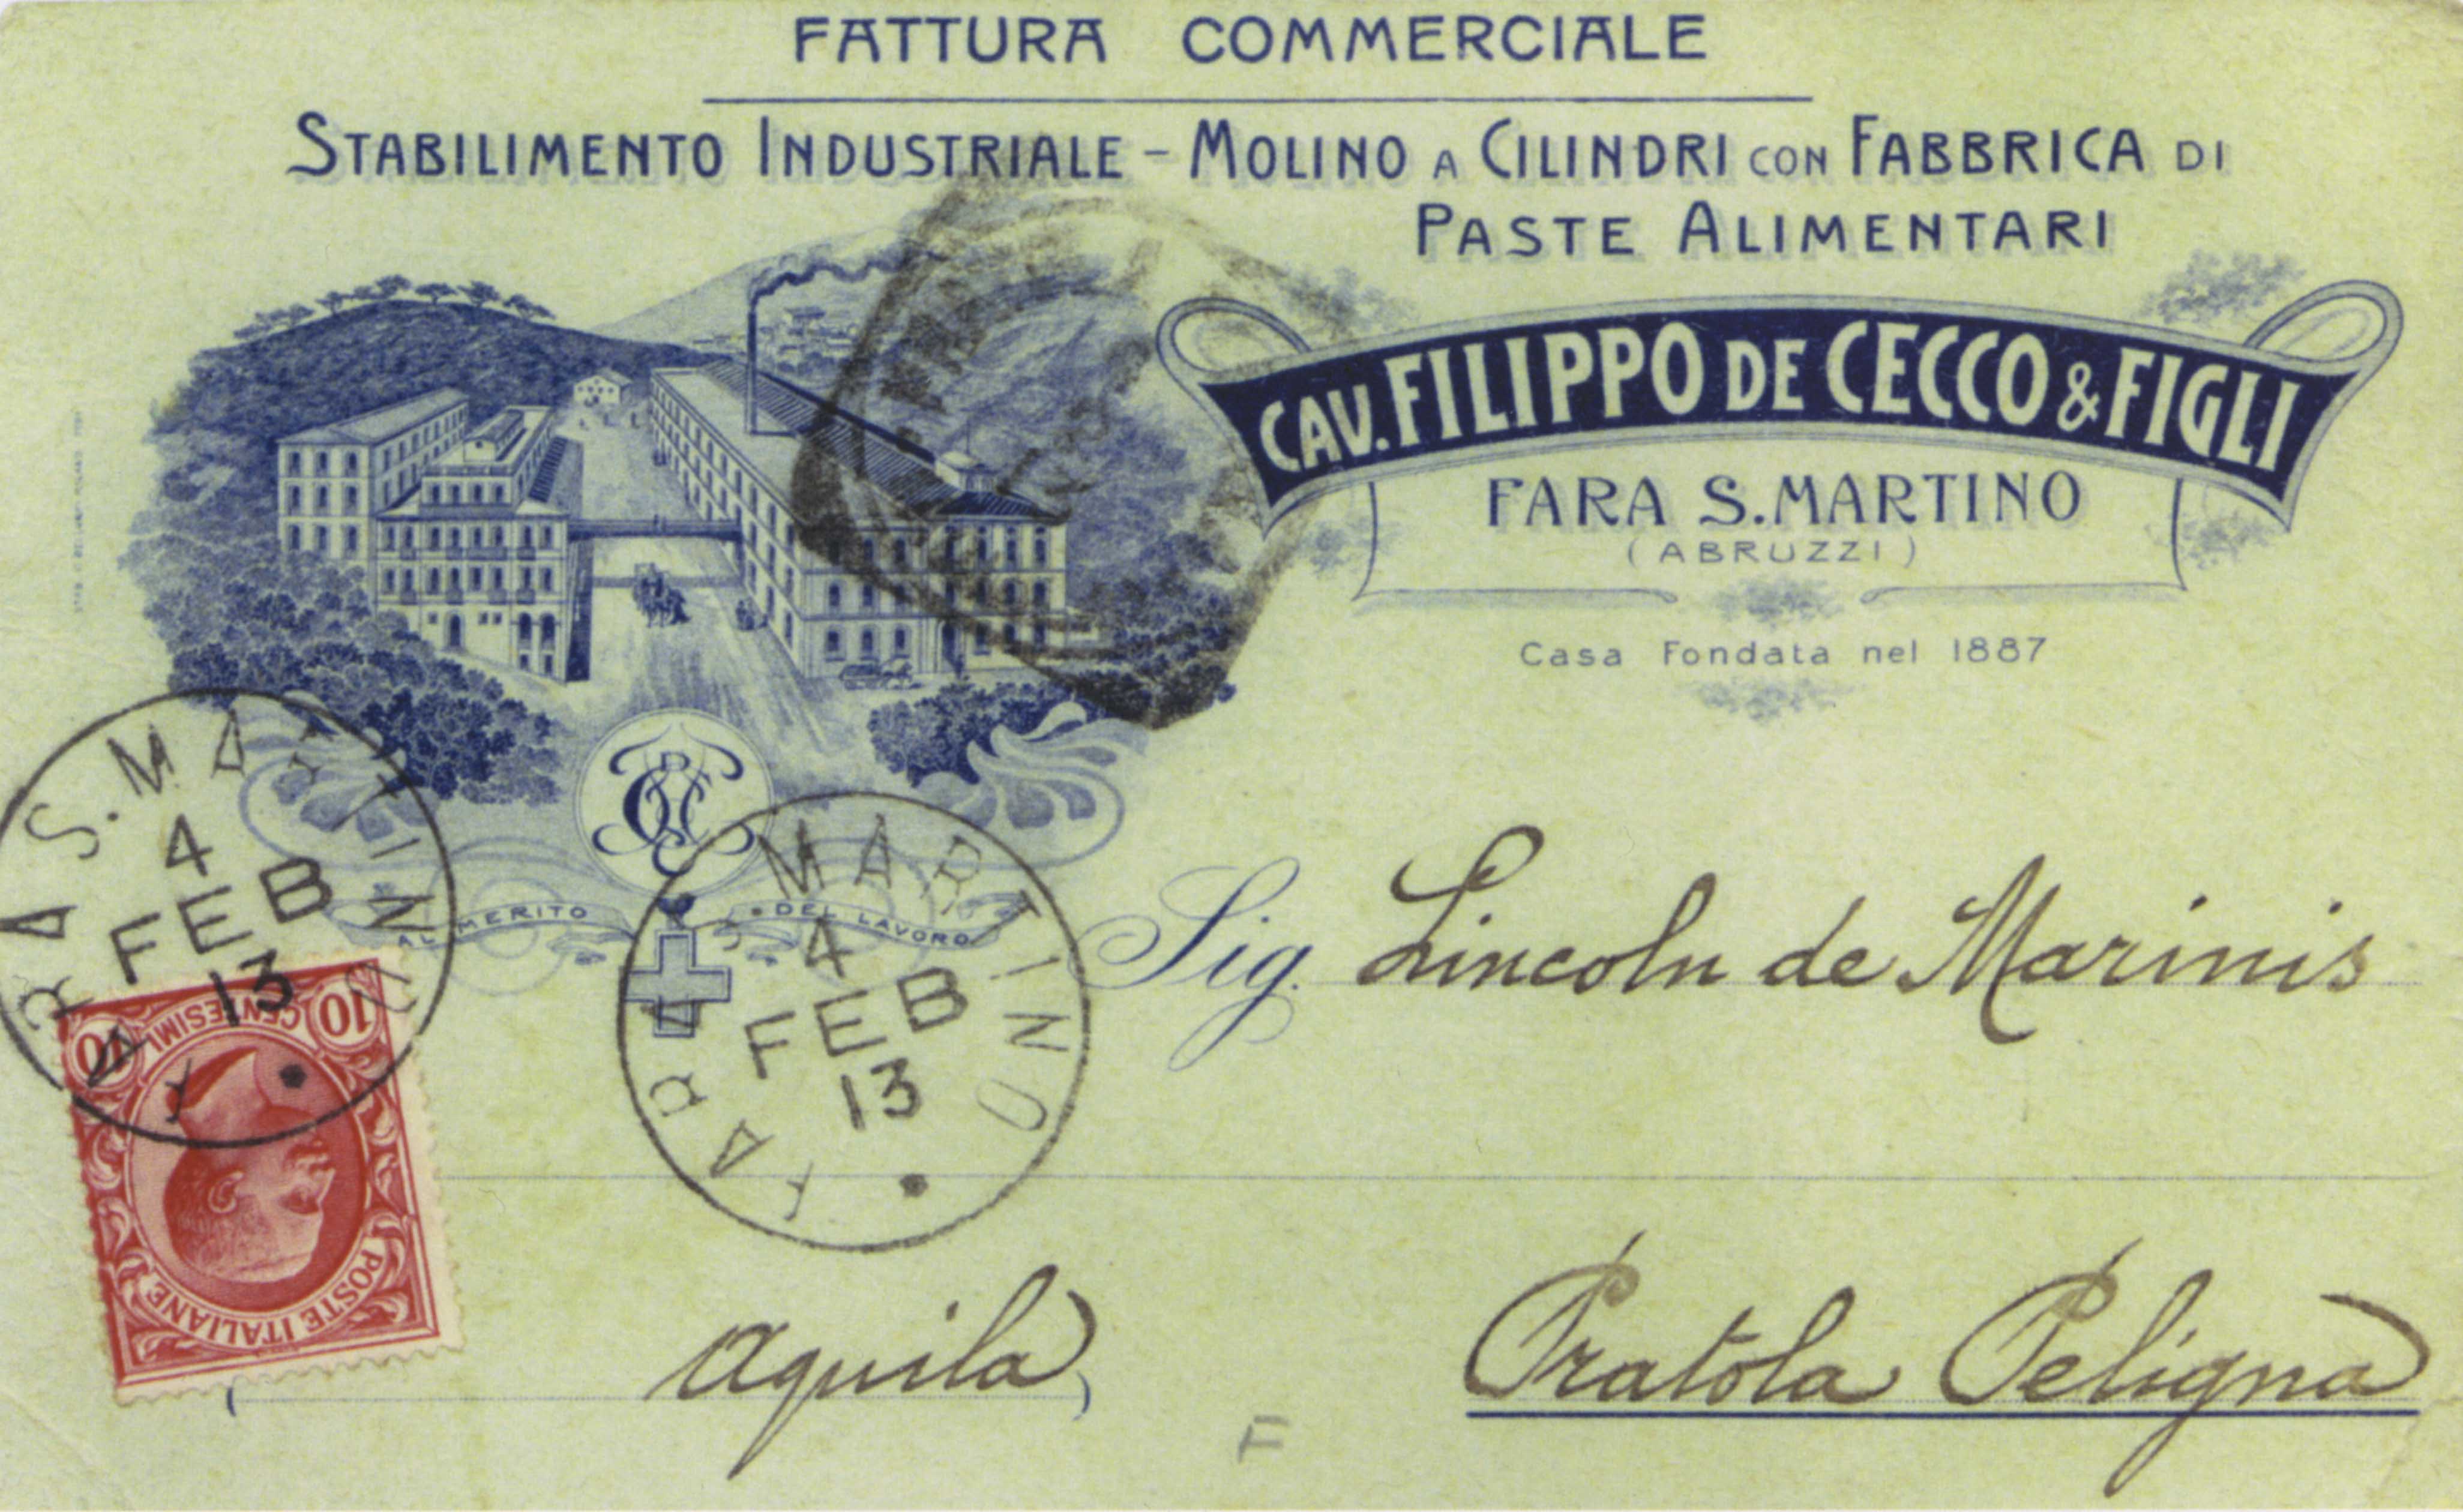 FATTURA COMMERCIALE
STABILIMENTO INDUSTRIALE - MOLINO A CILINDRI CON FABBRICA DI
PASTE ALIMENTARI
CAV. FILIPPO DE CECCO & FIGLI
FARA S. MARTINO
(ABRUZZI)
Casa Fondata nel 1887
AL MERITO DEL LAVORO
FARA S. MARTINO
4
FEB
13
FARA S. MARTINO
4
FEB
13
Sig. Lincoln de Marinis
10 CENTESIMI 10
POSTE ITALIANE
(Aquila)
Pratola Peligna
F